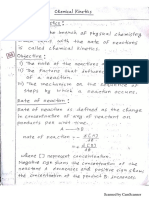 Chemical Kinetics
the branch of physical chemistry
with the rate of reactions
is called chemical kinetics.
Objective :
i) The rate of the reactions
ii) The factors that influence
of a reaction.
iii) The mechanism or the sequence of
steps by which a reaction occurs.
Rate of reaction :
Rate of reaction is defined as the change
in concentration of any of reactant or
products per unit time.
A → B
rate of reaction = - d[A]
dt
= d[B]
dt
where [] represent concentration.
Negative sign shows the concentration of the
reactant A decreases and positive sign shows
the concentration of the product B increases
Scanned by CamScanner